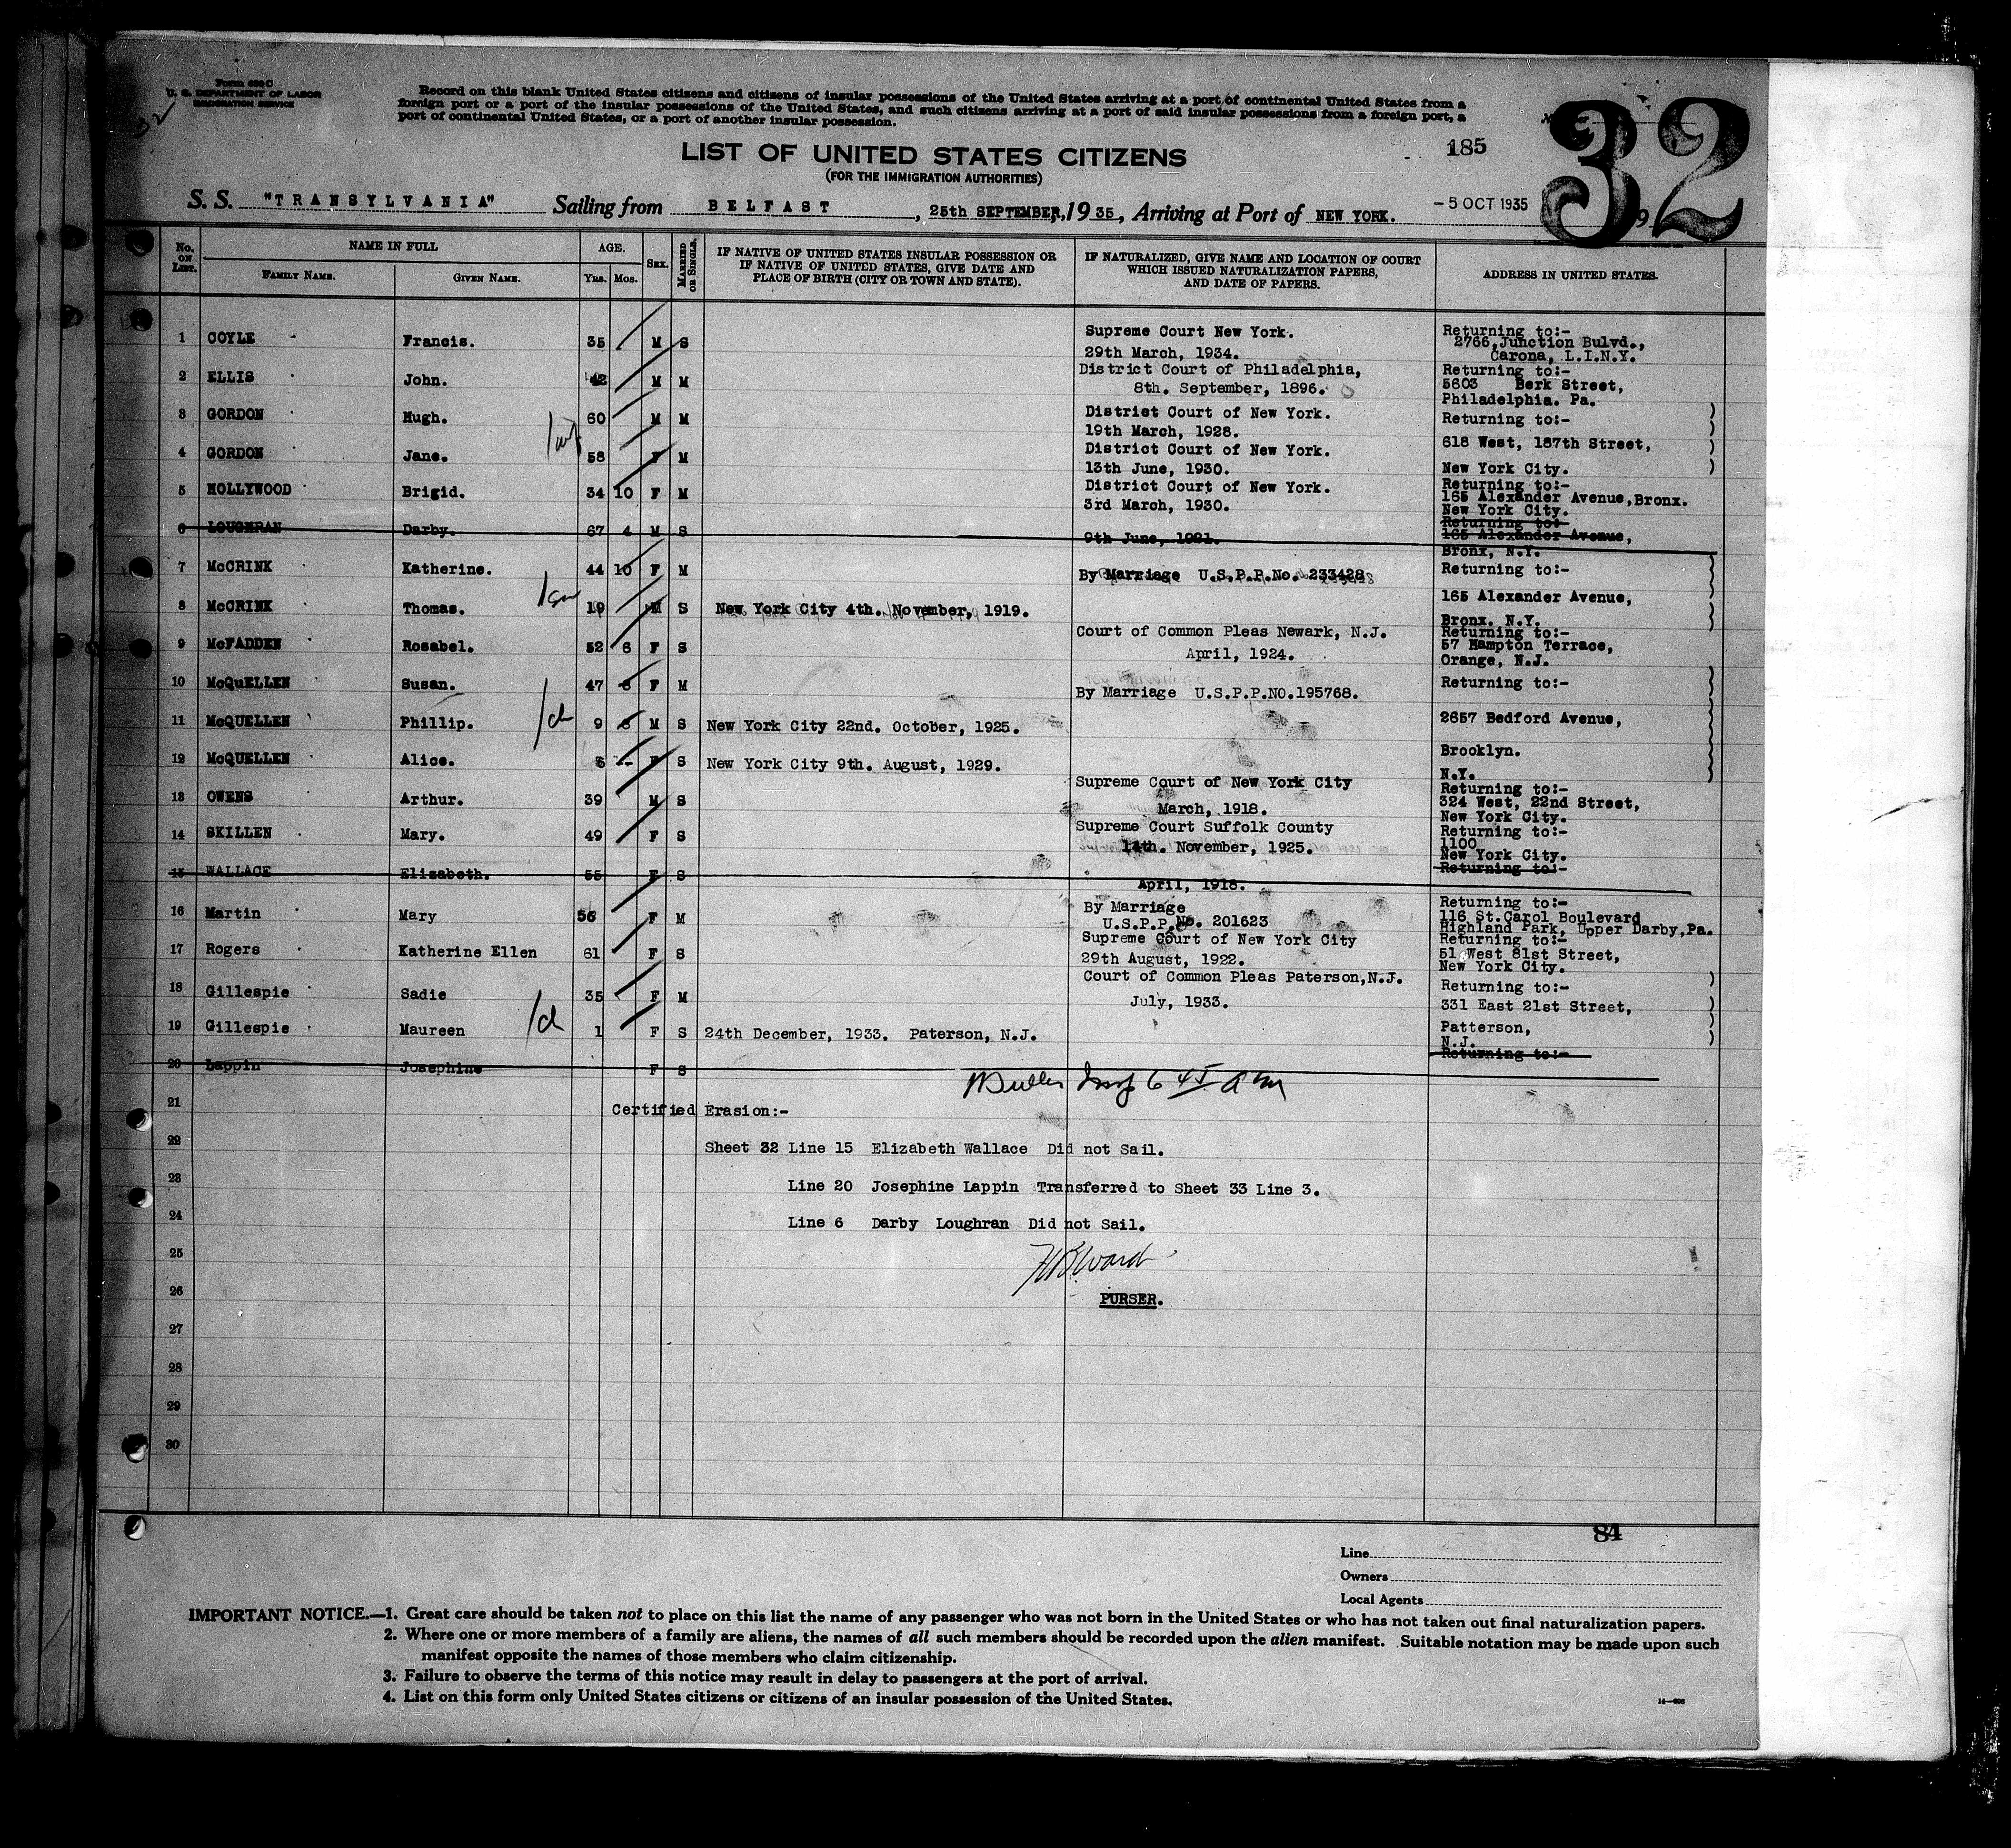 Form 630 C
U. S. DEPARTMENT OF LABOR
IMMIGRATION SERVICE
Record on this blank United States citizens and citizens of insular possessions of the United States arriving at a port of continental United States from a
foreign port or a port of the insular possessions of the United States, and such citizens arriving at a port of said insular possessions from a foreign port, a
port of continental United States, or a port of another insular possession.
32
185
LIST OF UNITED STATES CITIZENS
(FOR THE IMMIGRATION AUTHORITIES)
S. S. "TRANSYLVANIA" Sailing from BELFAST, 25th SEPTEMBER, 1935, Arriving at Port of NEW YORK. -5 OCT 1935
No. ON LIST. NAME IN FULL AGE. SEX. MARRIED OR SINGLE. IF NATIVE OF UNITED STATES INSULAR POSSESSION OR IF NATIVE OF UNITED STATES, GIVE DATE AND PLACE OF BIRTH (CITY OR TOWN AND STATE). IF NATURALIZED, GIVE NAME AND LOCATION OF COURT WHICH ISSUED NATURALIZATION PAPERS, AND DATE OF PAPERS. ADDRESS IN UNITED STATES.
FAMILY NAME. GIVEN NAME. YRS. MOS.
1 COYLE Francis. 35 M S Supreme Court New York. 29th March, 1934. Returning to:- 2766,Junction Bulvd., Carona, L.I.N.Y.
2 ELLIS John. 42 M M District Court of Philadelphia, 8th. September, 1896. Returning to:- 5603 Berk Street, Philadelphia. Pa.
3 GORDON Hugh. 60 M M District Court of New York. 19th March, 1928. Returning to:-
4 GORDON Jane. 58 F M District Court of New York. 13th June, 1930. 618 West, 187th Street, New York City.
5 HOLLYWOOD Brigid. 34 10 F M District Court of New York. 3rd March, 1930. Returning to:- 165 Alexander Avenue,Bronx. New York City.
6 LOUGHRAN Darby. 67 4 M S 9th June, 1921. Returning to:- 165 Alexander Avenue, Bronx, N.Y.
7 McCRINK Katherine. 44 10 F M By Marriage U.S.P.P.No. 233428 Returning to:-
8 McCRINK Thomas. 19 M S New York City 4th. November, 1919. 165 Alexander Avenue, Bronx. N.Y.
9 McFADDEN Rosabel. 52 6 F S Court of Common Pleas Newark, N.J. April, 1924. Returning to:- 57 Hampton Terrace, Orange, N.J.
10 McQuELLEN Susan. 47 8 F M By Marriage U.S.P.P.NO.195768. Returning to:-
11 McQUELLEN Phillip. 9 8 M S New York City 22nd. October, 1925. 2657 Bedford Avenue,
12 McQUELLEN Alice. 6 -- F S New York City 9th. August, 1929. Brooklyn. N.Y.
13 OWENS Arthur. 39 M S Supreme Court of New York City March, 1918. Returning to:- 324 West, 22nd Street, New York City.
14 SKILLEN Mary. 49 F S Supreme Court Suffolk County 14th. November, 1925. Returning to:- 1100 New York City.
15 WALLACE Elizabeth. 55 F S April, 1918. Returning to:-
16 Martin Mary 56 F M By Marriage U.S.P.P.No. 201623 Returning to:- 116 St.Carol Boulevard Highland Park, Upper Darby,Pa.
17 Rogers Katherine Ellen 61 F S Supreme Court of New York City 29th August, 1922. Returning to:- 51 West 81st Street, New York City.
18 Gillespie Sadie 35 F M Court of Common Pleas Paterson,N.J. July, 1933. Returning to:- 331 East 21st Street,
19 Gillespie Maureen 1 F S 24th December, 1933. Paterson, N.J. Patterson, N.J.
20 Lappin Josephine F S Returning to:-
21 Certified Erasion:-
22 Sheet 32 Line 15 Elizabeth Wallace Did not Sail.
23 Line 20 Josephine Lappin Transferred to Sheet 33 Line 3.
24 Line 6 Darby Loughran Did not Sail.
25 Ward
26 PURSER.
27
28
29
30
84
Line
Owners
Local Agents
IMPORTANT NOTICE.—1. Great care should be taken not to place on this list the name of any passenger who was not born in the United States or who has not taken out final naturalization papers.
2. Where one or more members of a family are aliens, the names of all such members should be recorded upon the alien manifest. Suitable notation may be made upon such
manifest opposite the names of those members who claim citizenship.
3. Failure to observe the terms of this notice may result in delay to passengers at the port of arrival.
4. List on this form only United States citizens or citizens of an insular possession of the United States.